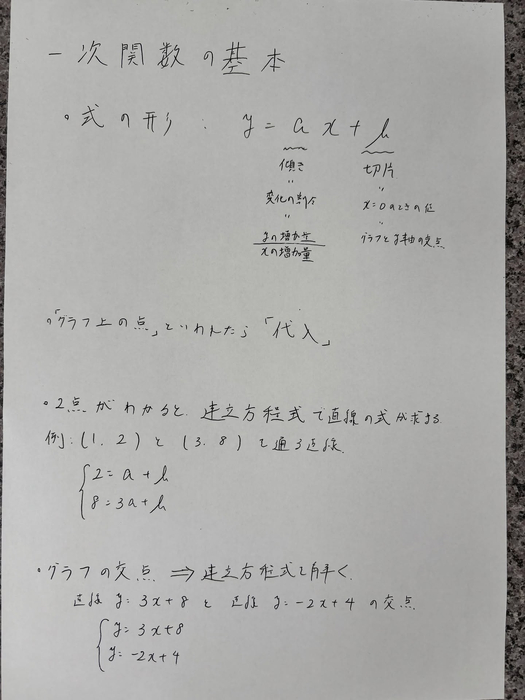 一次関数の基本
・式の形: y = ax + b
傾き 切片
〃 〃
変化の割合 x=0のときの値
〃 〃
yの増加量 グラフとy軸の交点
xの増加量
・「グラフ上の点」といわれたら「代入」
・2点がわかると、連立方程式で直線の式が求まる
例:(1, 2)と(3, 8)を通る直線
{2 = a + b
8 = 3a + b
・グラフの交点 ⇒ 連立方程式を解く
直線 y = 3x + 8 と 直線 y = -2x + 4 の交点
{y = 3x + 8
y = -2x + 4